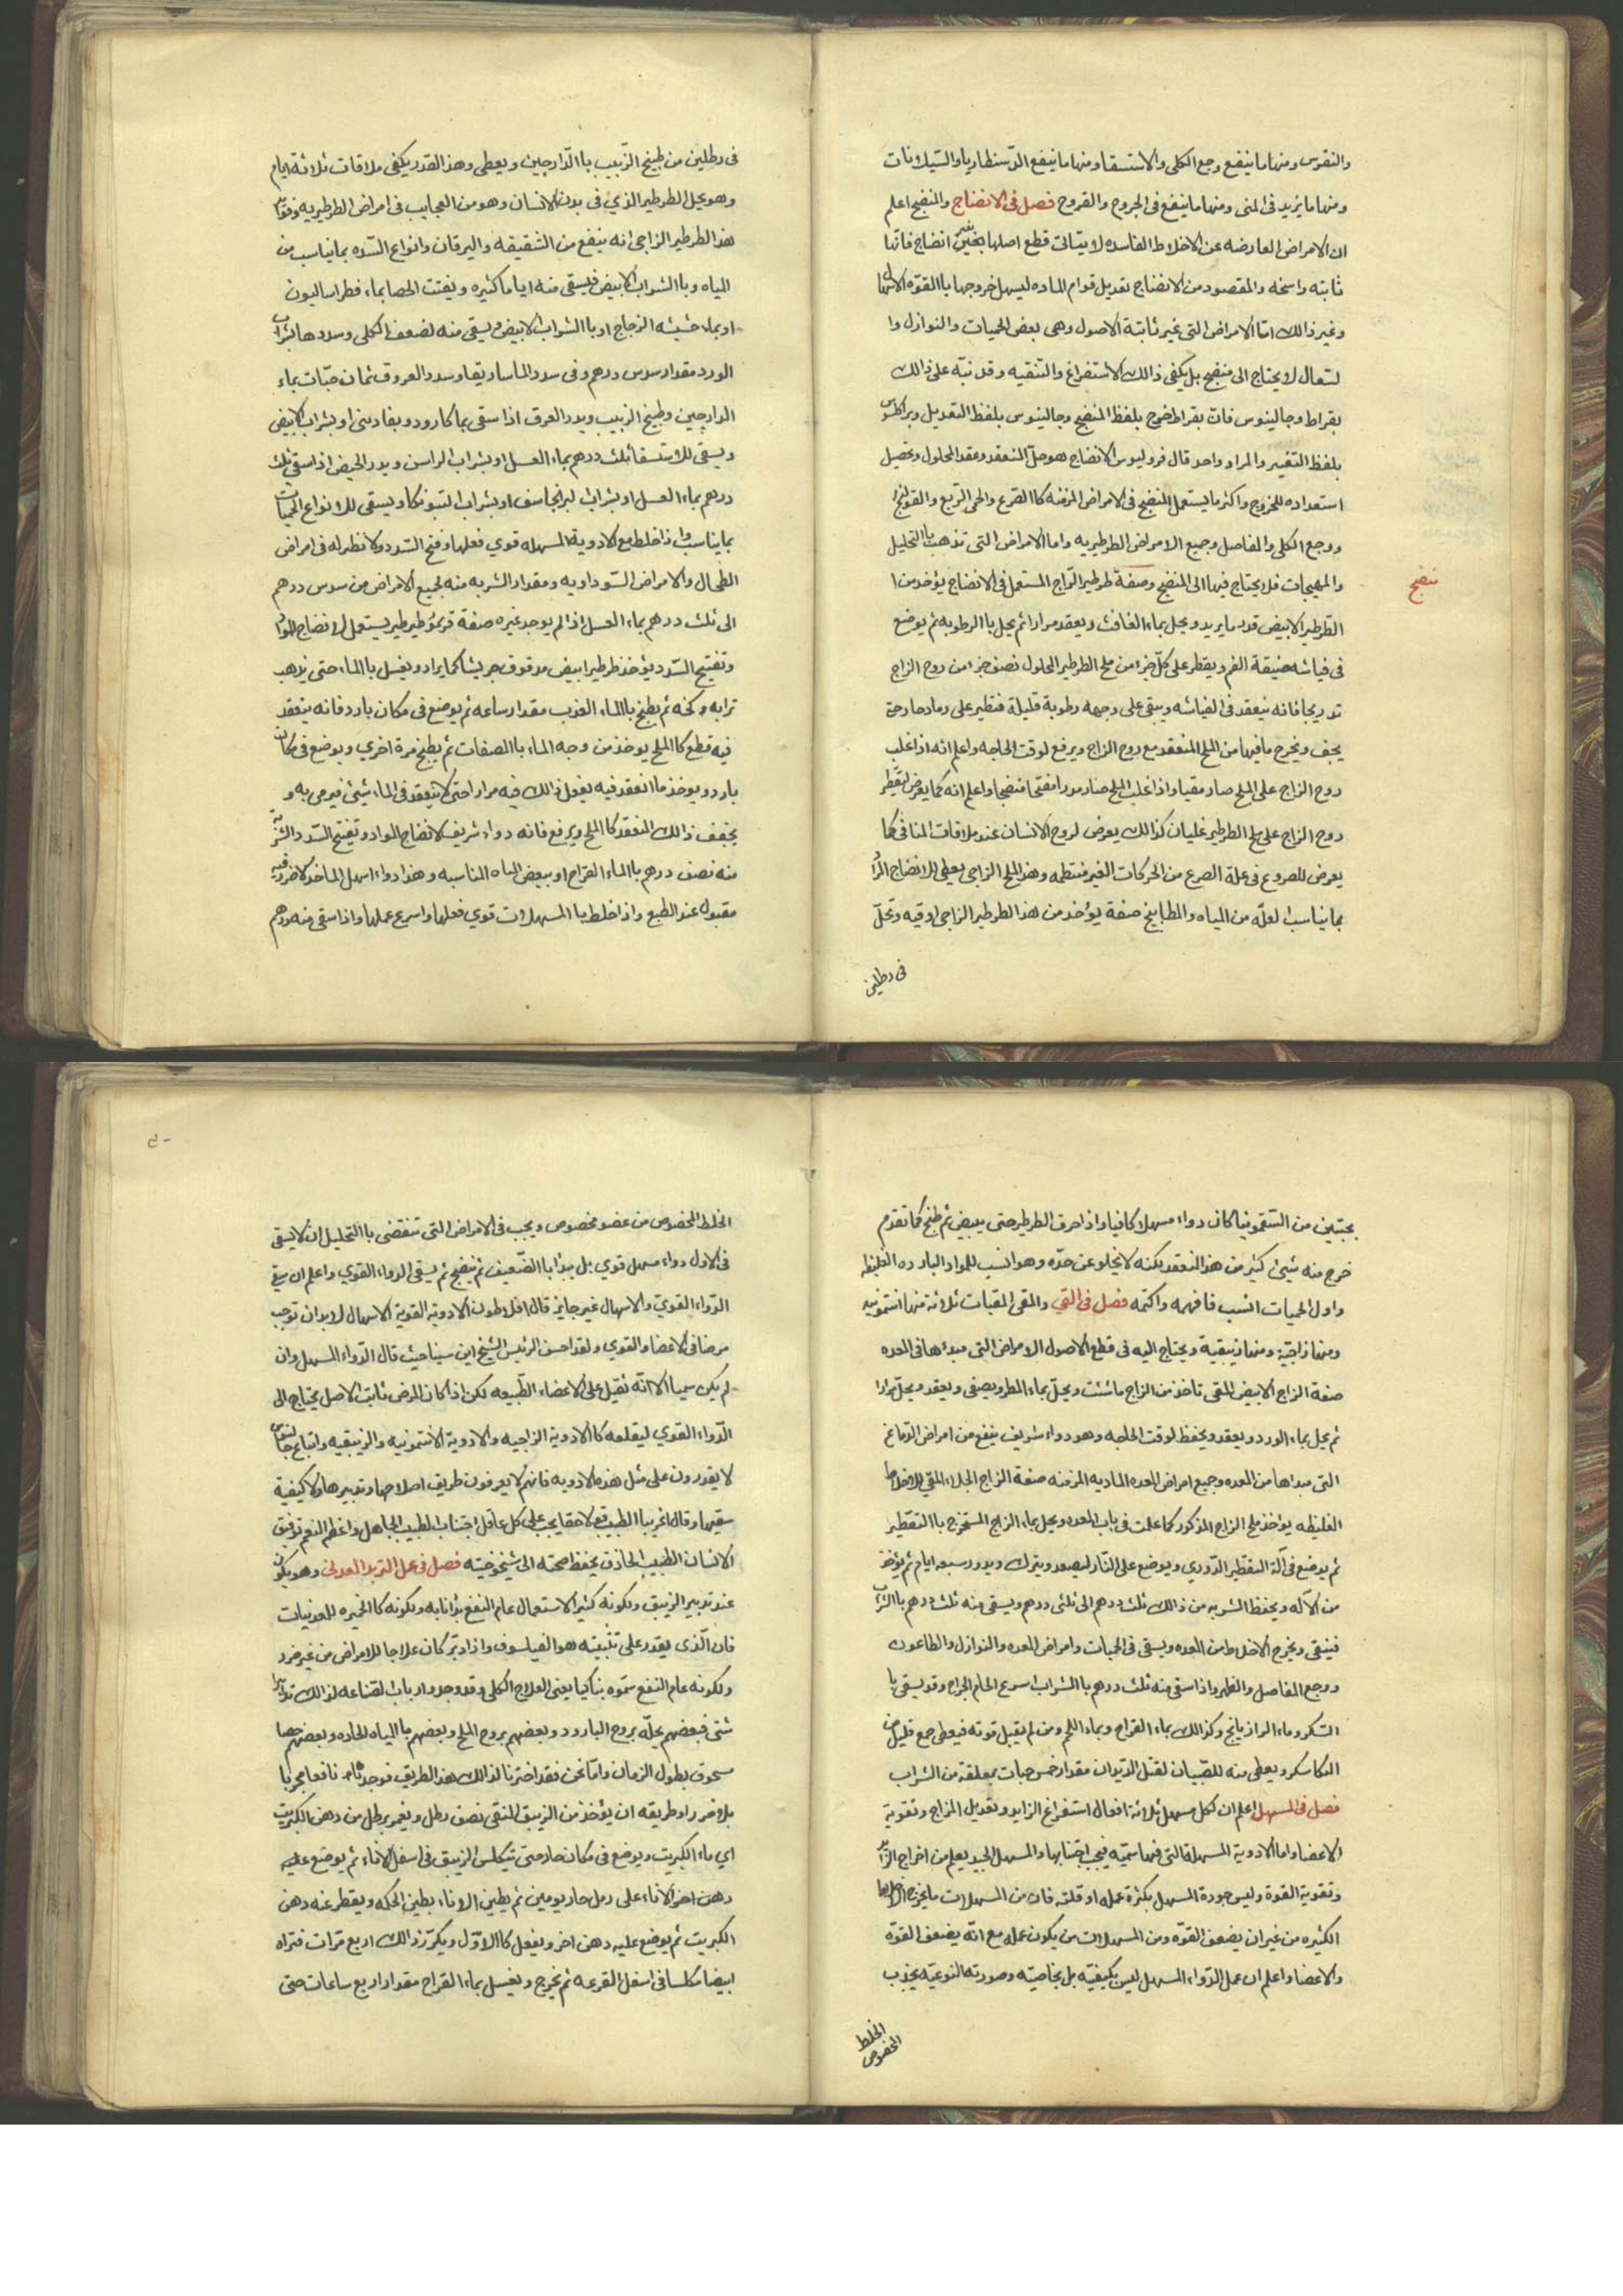 والنقرس ومنها ما ينفع وجع الكلى والاستسقا ومنها ما ينفع الدسنطاريا والسيلانات
ومنها ما يزيد فى المنى ومنها ما ينفع فى الجروح والقروح فصل فى الانضاج والمنضج اعلم
ان الامراض العارضه عن الاخلاط الفاسده لا يتأتى قطع اصلها بغير انضاج فانها
ثابته راسخه والمقصود من الانضاج تعديل قوام الماده ليسهل خروجها باالقوه
وغير ذالك امّا الامراض التى غير ثابتة الاصول وهى بعض الحميات والنوازل وا
لسعال لا يحتاج الى منضج بل يكفى ذالك الاستفراغ والتنقيه وقد نبّه على ذالك
بقراط وجالينوس فانّ بقراط بلفظ المنضج وجالينوس بلفظ التعديل وبراكلسوس
بلفظ التغيير والمراد واحد قال فروليوس الانضاج هو حلّ المنعقد وعقد المحلول وتحصيل
استعداده للخروج واكثر ما يستعمل المنضج فى الامراض المزمنه كاالصرع والحمى الربع والقولنج
ووجع الكلى والمفاصل وجميع الامراض الطرطيريه واما الامراض التى تذهب باالتحليل
والمهيجات فلا يحتاج فيها الى المنضج وصفة طرطير الزاج المستعمل فى الانضاج يؤخذ من ا
منضج
لطرطير الابيض قدر ما يريد ويحل بماء الغافث ويعقد مرارا ثم يحل باالرطوبه ثم يوضع
فى فياشه ضيقة الفم ويقطر على كلّ جزء من ملح الطرطير المحلول نصف جزء من روح الزاج
تدريجا فانه ينعقد فى الفياشه ويبقى على وجهه رطوبة قليلة فتطير على رماد حار حتى
يجف ويخرج ما فيها من الملح المنعقد مع روح الزاج ويرفع لوقت الحاجه واعلم انه اذا غلب
روح الزاج على الملح صار مقيا واذا غلب الملح صار مدرا مفتحا منضجا واعلم انه كما يعرض لتقطر
روح الزاج على ملح الطرطير غليان كذالك يعرض لروح الانسان عند ملاقات المنافى كما
يعرض للمصروع فى علة الصرع من الحركات الغير منتظمه وهذ الملح الزاجى يعطى للانضاج
بما يناسب لعلّه من المياه والمطابيخ صفة يؤخذ من هذ الطرطير الزاجى اوقيه وتحلّ
فى رطلين
فى رطلين من طبيخ الزبيب باالدارجين ويعطى وهذ القدر يكفى ملاقات ثلاثة ايام
وهو يحل الطرطير الذي فى بدن الانسان وهو من العجايب فى امراض الطرطيريه وفوائد
هذ الطرطير الزاجى انه ينفع من الشقيقه واليرقان وانواع السّده بما يناسب من
المياه وباالشراب الابيض فيسقى منه اياما كثيره ويفتت الحصا بماء فطراساليون
او بماء حشيشه الزجاج او باالشراب الابيض ويسقى منه لضعف الكلى وسددها بشراب
الورد مقدار سدس درهم وفى سدد الماساريقا وسدد العروق ثمان حبّات بماء
الدارچين وطبيخ الزبيب ويدر العرق اذا سقى بماء او بشراب الابيض
ويسقى للاستسقا ثلث درهم بماء العسل او بشراب الراسن ويدر الحيض اذا سقى ثلث
درهم بماء العسل او بشراب البرنجاسف او بشراب ويسقى للانواع الحميات
بما يناسب واذا خلط مع الادوية المسهله قوي فعلها وفتح السدد ولا نظير له فى امراض
الطحال والامراض السّوداويه ومقدار الشربه منه لجميع الامراض من سدس درهم
الى ثلث درهم بماء العسل اذا لم يوجد غيره صفة قرمو طرطير يستعمل لانضاج المواد
وتفتيح السّدد يؤخذ طرطير ابيض مدقوق جريشا كما يراد ويغسل باالماء حتى يذهب
ترابه وسخه ثم يطبخ باالماء العذب مقدار ساعه ثم يوضع فى مكان بارد فانه ينعقد
فيه قطع كاالملح يوخذ من وجه الماء باالصفات ثم يطبخ مرة اخري ويوضع فى مكان
بارد ويوخذ ما انعقد فيه يفعل ذالك فيه مرارا حتى لا ينعقد فى الماء شيئ فيرمى به و
يجفف ذالك المنعقد كاالملح ويرفع فانه دواء شريف لانضاج المواد وتفتيح السّدد الشربة
منه نصف درهم باالماء القراح او ببعض المياه المناسبه وهذا دواء اسهل الماخذ لا ضرر فيه
مقبول عند الطبع واذا خلط باالمسهلات قوي فعلها واسرع عملها واذا سقى منه درهم
بحبتين من السقمونيا كان دواء مسهلا كافيا واذا حرق الطرطير حتى يبيض ثم طبخ كما تقدم
خرج منه شيئ كثير من هذ المنعقد لكنه لا يخلو عن حدّه وهو انسب للمواد البارده الغليظه
واول الحميات انسب فافهمه واكتمه فصل فى القي والمقى المقيات ثلاثة منها انتمونيه
ومنها زاجيّة ومنها زيبقية ويحتاج اليه فى قطع الاصول الامراض التى مبدءها فى المعده
صفة الزاج الابيض المقى تاخذ من الزاج ما شئت ويحلّ بماء المطر ويصفى ويعقد ويحلّ مرارا
ثم يحل بماء الورد ويعقد ويحفظ لوقت الحاجه وهو دواء شريف ينفع من امراض الدماغ
التى مبداها من المعده وجميع امراض المعده الماديه المزمنه صفة الزاج الجلاء المقي للاخلاط
الغليظه يؤخذ ملح الزاج المذكور كما علمت فى باب المعده ويحل بماء الزاج المستخرج باالتقطير
ثم يوضع فى آلة التقطير الدّوري ويوضع على النّار ليصعد ويترك ويدور سبعه ايام ثم يؤخذ
من الآله ويحفظ الشربه من ذالك ثلث درهم الى ثلثى درهم ويسقى منه ثلث درهم باالشراب
فينقى ويخرج الاخلاط من المعده ويسقى فى الحميات وامراض المعده والنوازل والطاعون
ووجع المفاصل والظهر واذا سقى منه ثلث درهم باالشراب اسرع الحام الجراح وقد يسقى با
السكر وماء الرازيانج وكذالك بماء القراح وبماء اللحم ومن لم يقبل قوته فيعطى مع قليل من
السكر ويعطى منه للصبيان لقتل الديدان مقدار خمس حبات بمعلقة من الشراب
فصل فى المسهل اعلم ان لكل مسهل ثلاثة افعال استفراغ الزايد وتعديل المزاج وتقوية
الاعضا واما الادوية المسهلة التى فيها سمّيه فيجب اجتنابها والمسهل الجيد يعلم من اخراج الزايد
وتقوية القوة وليس جودة المسهل بكثرة عمله او قلته فان من المسهلات ما يخرج الاخلاط
الكثيره من غير ان يضعف القوّه ومن المسهلات من يكون عمله مع انّه يضعف القوّه
والاعضا واعلم ان عمل الدّواء المسهل ليس بكيفيّته بل بخاصيّته وصورته النوعيّه يجذب
الخلط
المخصوص
الخلط المخصوص من عضو مخصوص ويجب فى الامراض التى تنقضى باالتحليل ان لا يسقى
فى الاول دواء مسهل قوي بل يبدا باالضّعيف ثم ينضج ثم يسقى الدواء القوي واعلم ان سقى
الدّواء القويّ والاسهال غير جايز قال افلاطون الادوية القوية الاسهال لابدان توجب
مرضا فى الاعضاء والقوي ولقد احسن الرئيس الشيخ ابن سينا حيث قال الدّواء المسهل وان
لم يكن سميا الا انّه ثقيل على الاعضاء الطّبيعه لكن اذا كان المرض ثابت الاصل يحتاج الى
الدّواء القوي ليقلعه كاالادوية الزاجيه والادوية الانتمونيه والزيبقيه واتباع جالينوس
لا يقدرون على مثل هذه الادويه فانهم لا يعرفون طريق اصلاحها وتدبيرها ولا كيفية
سقيها وقال الطبيب حقا يجب على كل عاقل اجتناب الطبيب الجاهل واعظم النعم توفيق
الانسان الطبيب الحاذق يحفظ صحته الى شيخوخيته فصل فى عمل التربد المعدنى وهو يكون
عند تدبير الزيبق ولكونه كثير الاستعمال عام النفع بدانا به ولكونه كاالخميره للمعدنيات
فان الّذى يقدر على تثبيته هو الفيلسوف واذا دبّر كان علاجا للامراض من غير ضرر
ولكونه عام النفع سمّوه بناكيا يعنى العلاج الكلى وقد وجدوا رباب الصّناعه لذالك تدابير
شتى فبعضهم يحلّه بروح البارود وبعضهم بروح الملح وبعضهم باالمياه الحاده وبعضهم
مسحوق بطول الزمان وامّا نحن فقد اخترنا لذالك هذ الطريق فوجدناه نافعا مجربا
بلا ضرر وطريقه ان يؤخذ من الزيبق المنقى نصف رطل ويغمر برطل من دهن الكبريت
اي ماء الكبريت ويوضع فى مكان حار حتى يتكلس الزيبق فى اسفل الاناء ثم يوضع عليه
دهن اخر الاناء على رمل حار يومين ثم يطين الاناء بطين الحكمه ويقطر عنه دهن
الكبريت ثم يوضع عليه دهن اخر ويفعل كاالاوّل ويكرّر ذالك اربع مرّات فتراه
ابيضا مكلسا فى اسفل القرعه ثم يخرج ويغسل بماء القراح مقدار اربع ساعات حتى